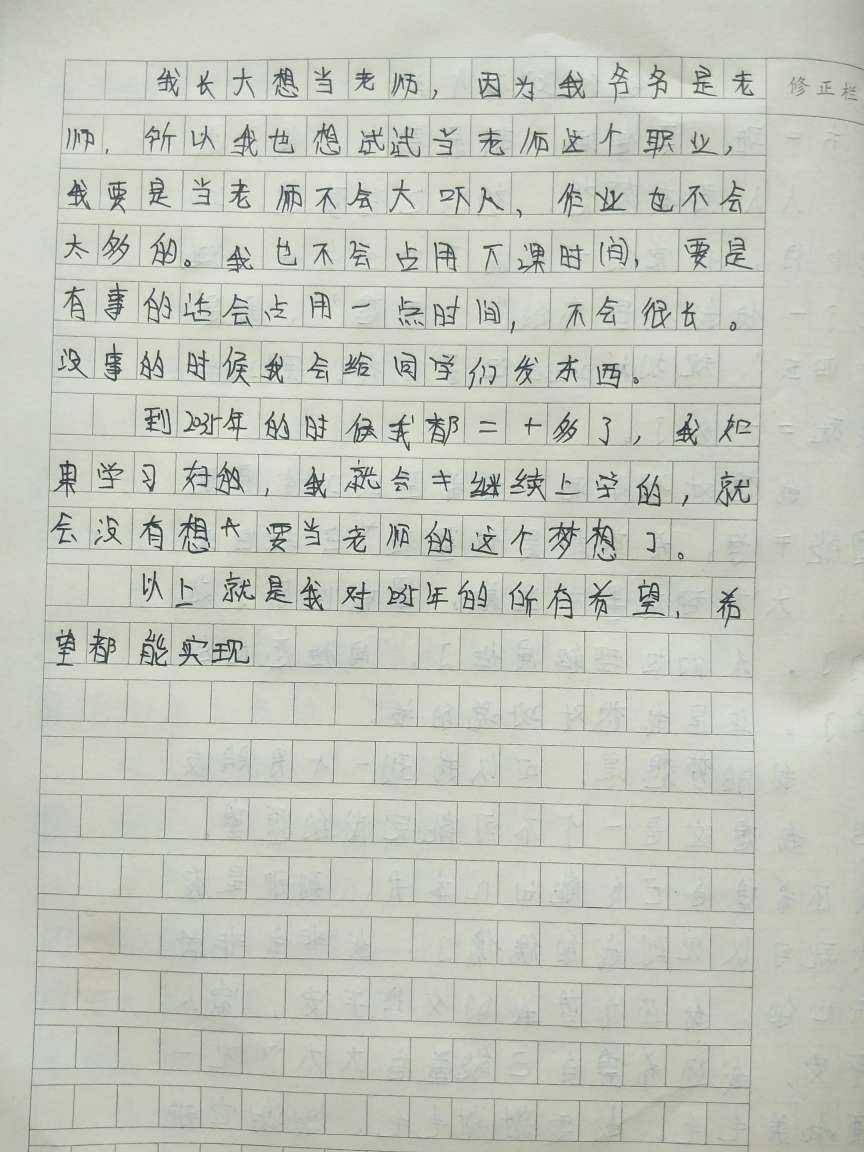 我长大想当老师，因为我爷爷是老
修正栏
师，所以我也想试试当老师这个职业，
我要是当老师不会大吓人，作业也不会
太多的。我也不会占用下课时间，要是
有事的话会占用一点时间，不会很长。
没事的时候我会给同学们发东西。
到2035年的时候我都二十多了，我如
果学习好的，我就会继续上学的，就
会没有想要当老师的这个梦想了。
以上就是我对2035年的所有希望，希
望都能实现